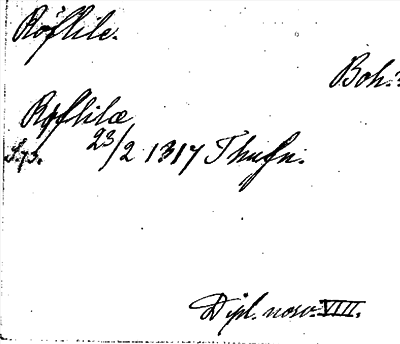 Röflile.
Boh:
Røflilæ
S. 73. 23/2 1317 Thufn.
Dipl. norv. VIII.